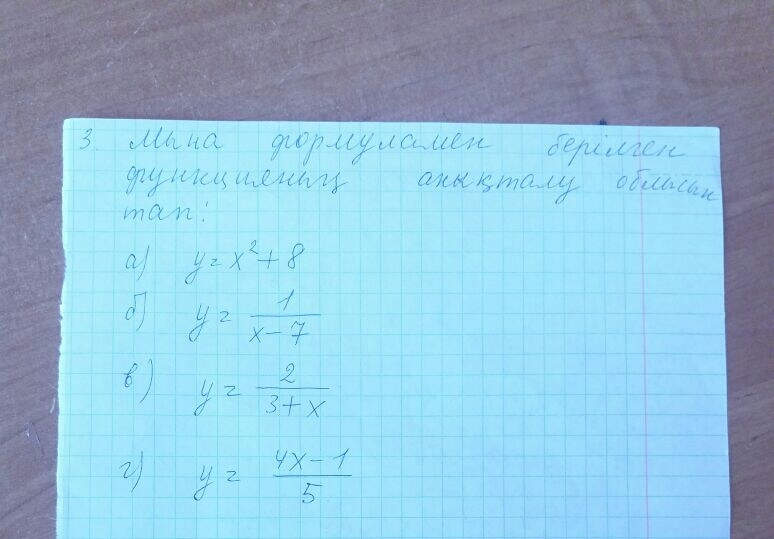 3. Мына формуламен берілген
функцияның анықталу облысын
тап:
а) y = x² + 8
б) y = 1/(x - 7)
в) y = 2/(3 + x)
г) y = (4x - 1)/5